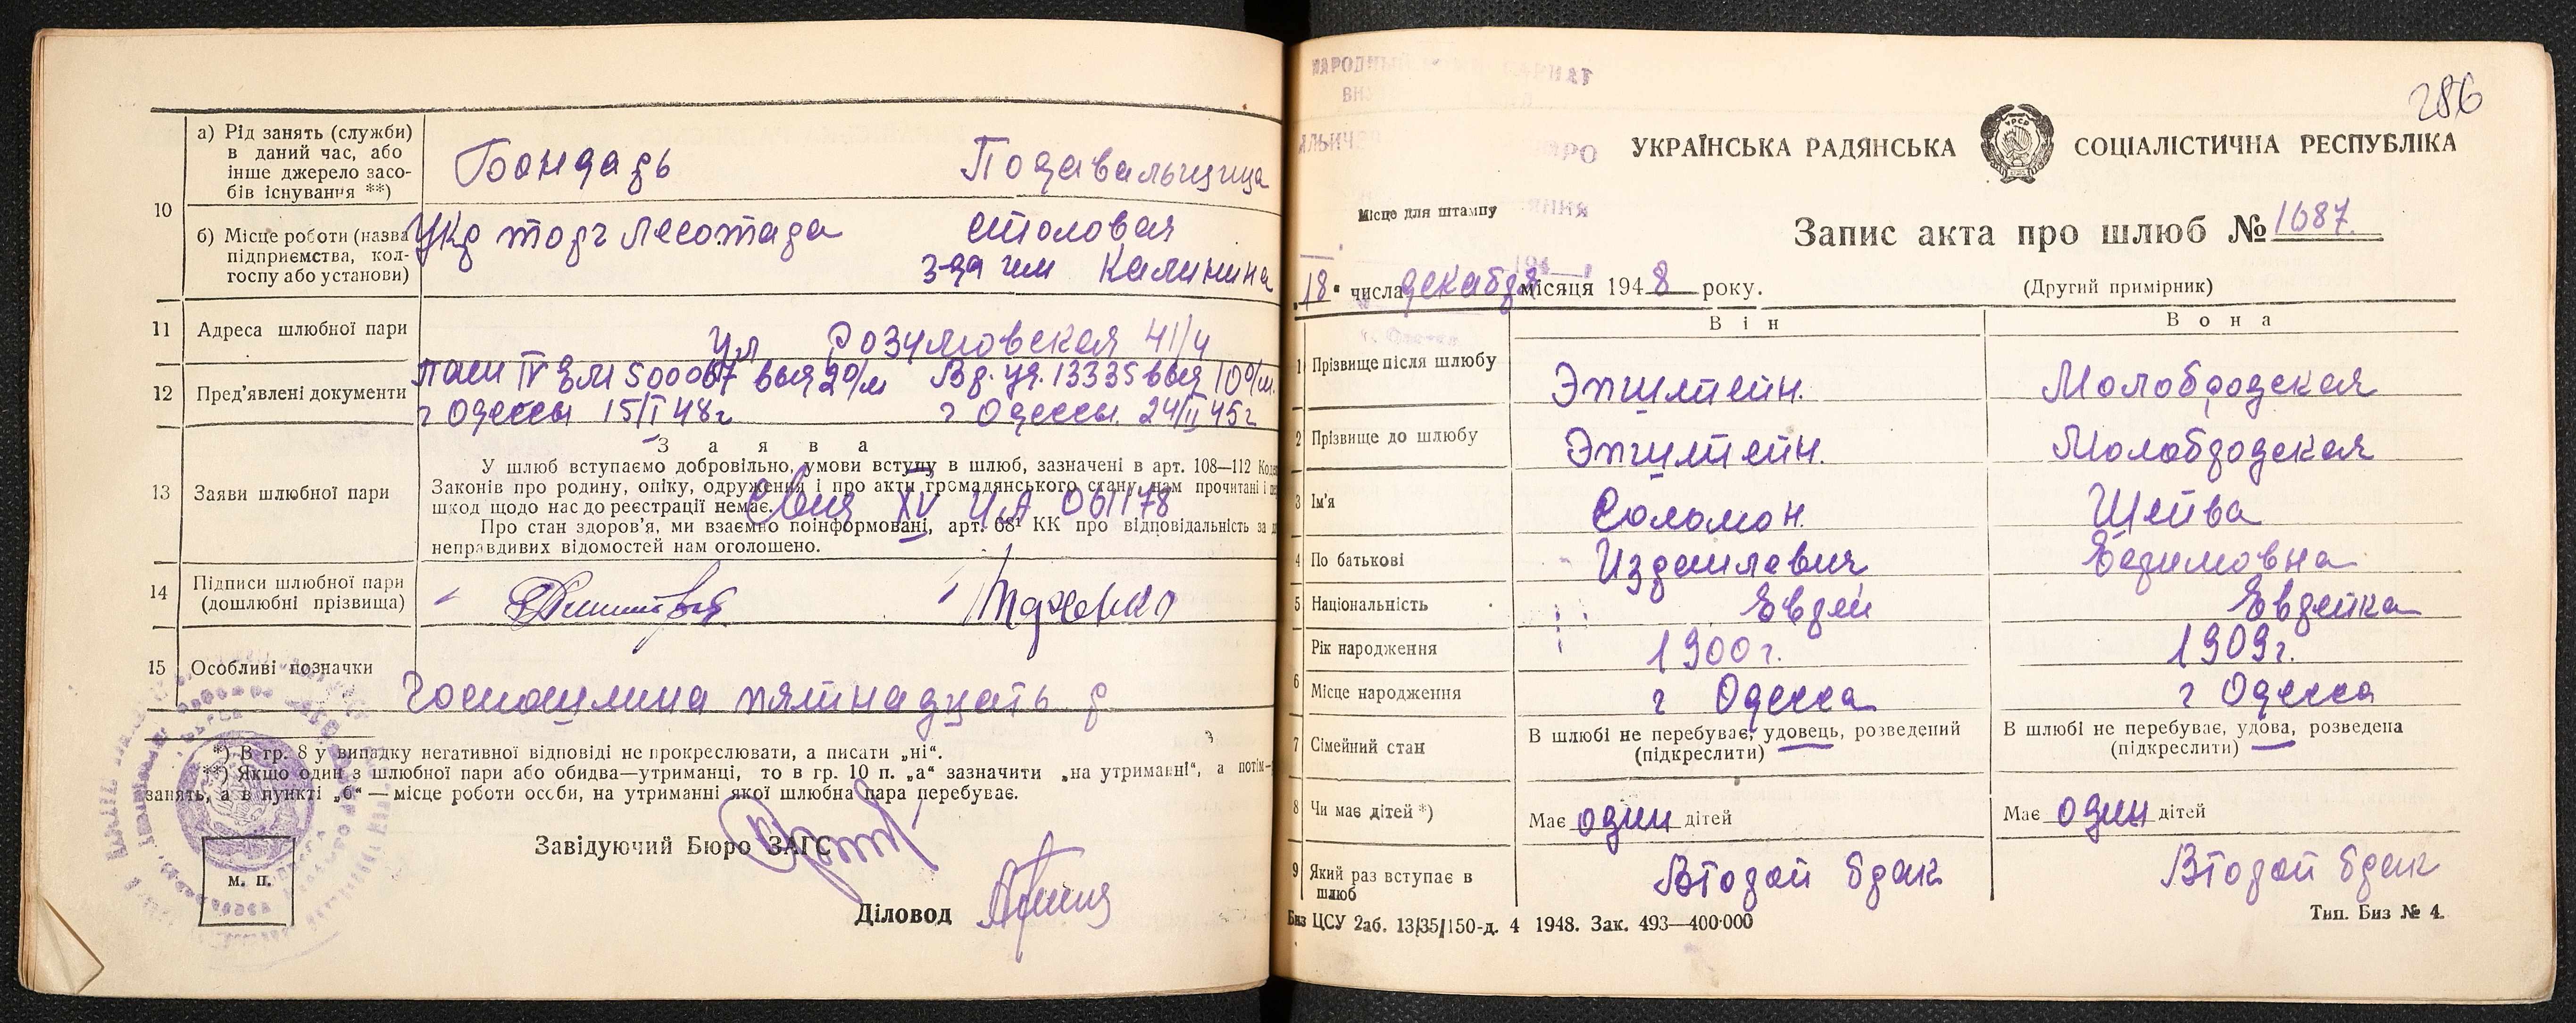 10
а) Рід занять (служби)
в даний час, або
інше джерело засо-
бів існування **)
Бондарь
Подавальщица
б) Місце роботи (назва
підприємства, кол-
госпу або установи)
Укр торг Лесотара
столовая
з-да им Калинина
11 Адреса шлюбної пари
ул Розумовская 41/4
12 Пред'явлені документи
пасп IV ЭМ 500067 выд 20/м Вр. уд. 13335 выд 10 о/м.
г Одессы 15/I 48г г Одессы 24/II 45г
З а я в а
13 Заяви шлюбної пари
У шлюб вступаємо добровільно, умови вступу в шлюб, зазначені в арт. 108—112
Законів про родину, опіку, одруження і про акти громадянського стану нам прочитані і
шкод щодо нас до реєстрації немає.
Свид XV ИА 061178
Про стан здоров'я, ми взаємно поінформовані, арт. 68¹ КК про відповідальність за
неправдивих відомостей нам оголошено.
14 Підписи шлюбної пари
(дошлюбні прізвища)
15 Особливі позначки
госпошлина пятнадцать р
*) В гр. 8 у випадку негативної відповіді не прокреслювати, а писати „ні“.
**) Якщо один з шлюбної пари або обидва—утриманці, то в гр. 10 п. „а“ зазначити „на утриманні“, а потім
занять, а в пункті „б“ — місце роботи особи, на утриманні якої шлюбна пара перебуває.
Завідуючий Бюро ЗАГС
м. п.
Діловод
286
УКРАЇНСЬКА РАДЯНСЬКА СОЦІАЛІСТИЧНА РЕСПУБЛІКА
УРСР
Місце для штампу
Запис акта про шлюб № 1687.
„18“ числа декабря місяця 1948 року.
(Другий примірник)
Він
Вона
1 Прізвище після шлюбу
Эпштейн.
Молобродская
2 Прізвище до шлюбу
Эпштейн.
Молобродская
3 Ім'я
Соломон.
Шейва
4 По батькові
Израилевич
Ефимовна
5 Національність
Еврей
Еврейка
6
Рік народження
1900г.
1909г.
Місце народження
г Одесса
г Одесса
7 Сімейний стан
В шлюбі не перебуває, удовець, розведений
(підкреслити)
В шлюбі не перебуває, удова, розведена
(підкреслити)
8 Чи має дітей *)
Має один дітей
Має один дітей
9 Який раз вступає в
шлюб
Второй брак
Второй брак
Биз ЦСУ 2аб. 13/35/150-д. 4 1948. Зак. 493—400·000
Тип. Биз № 4.